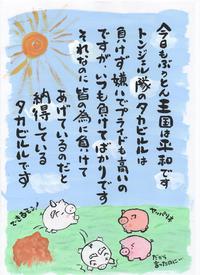 今日もぶっとん王国は平和です
トンジョル隊のタカビルは
負けず嫌いでプライドも高いの
ですが、いつも負けてばかりです
それなのに皆の為に負けて
あげているのだと
納得している
タカビルルです
できるモン!
ヤッパリネ
だから
言ったのに…